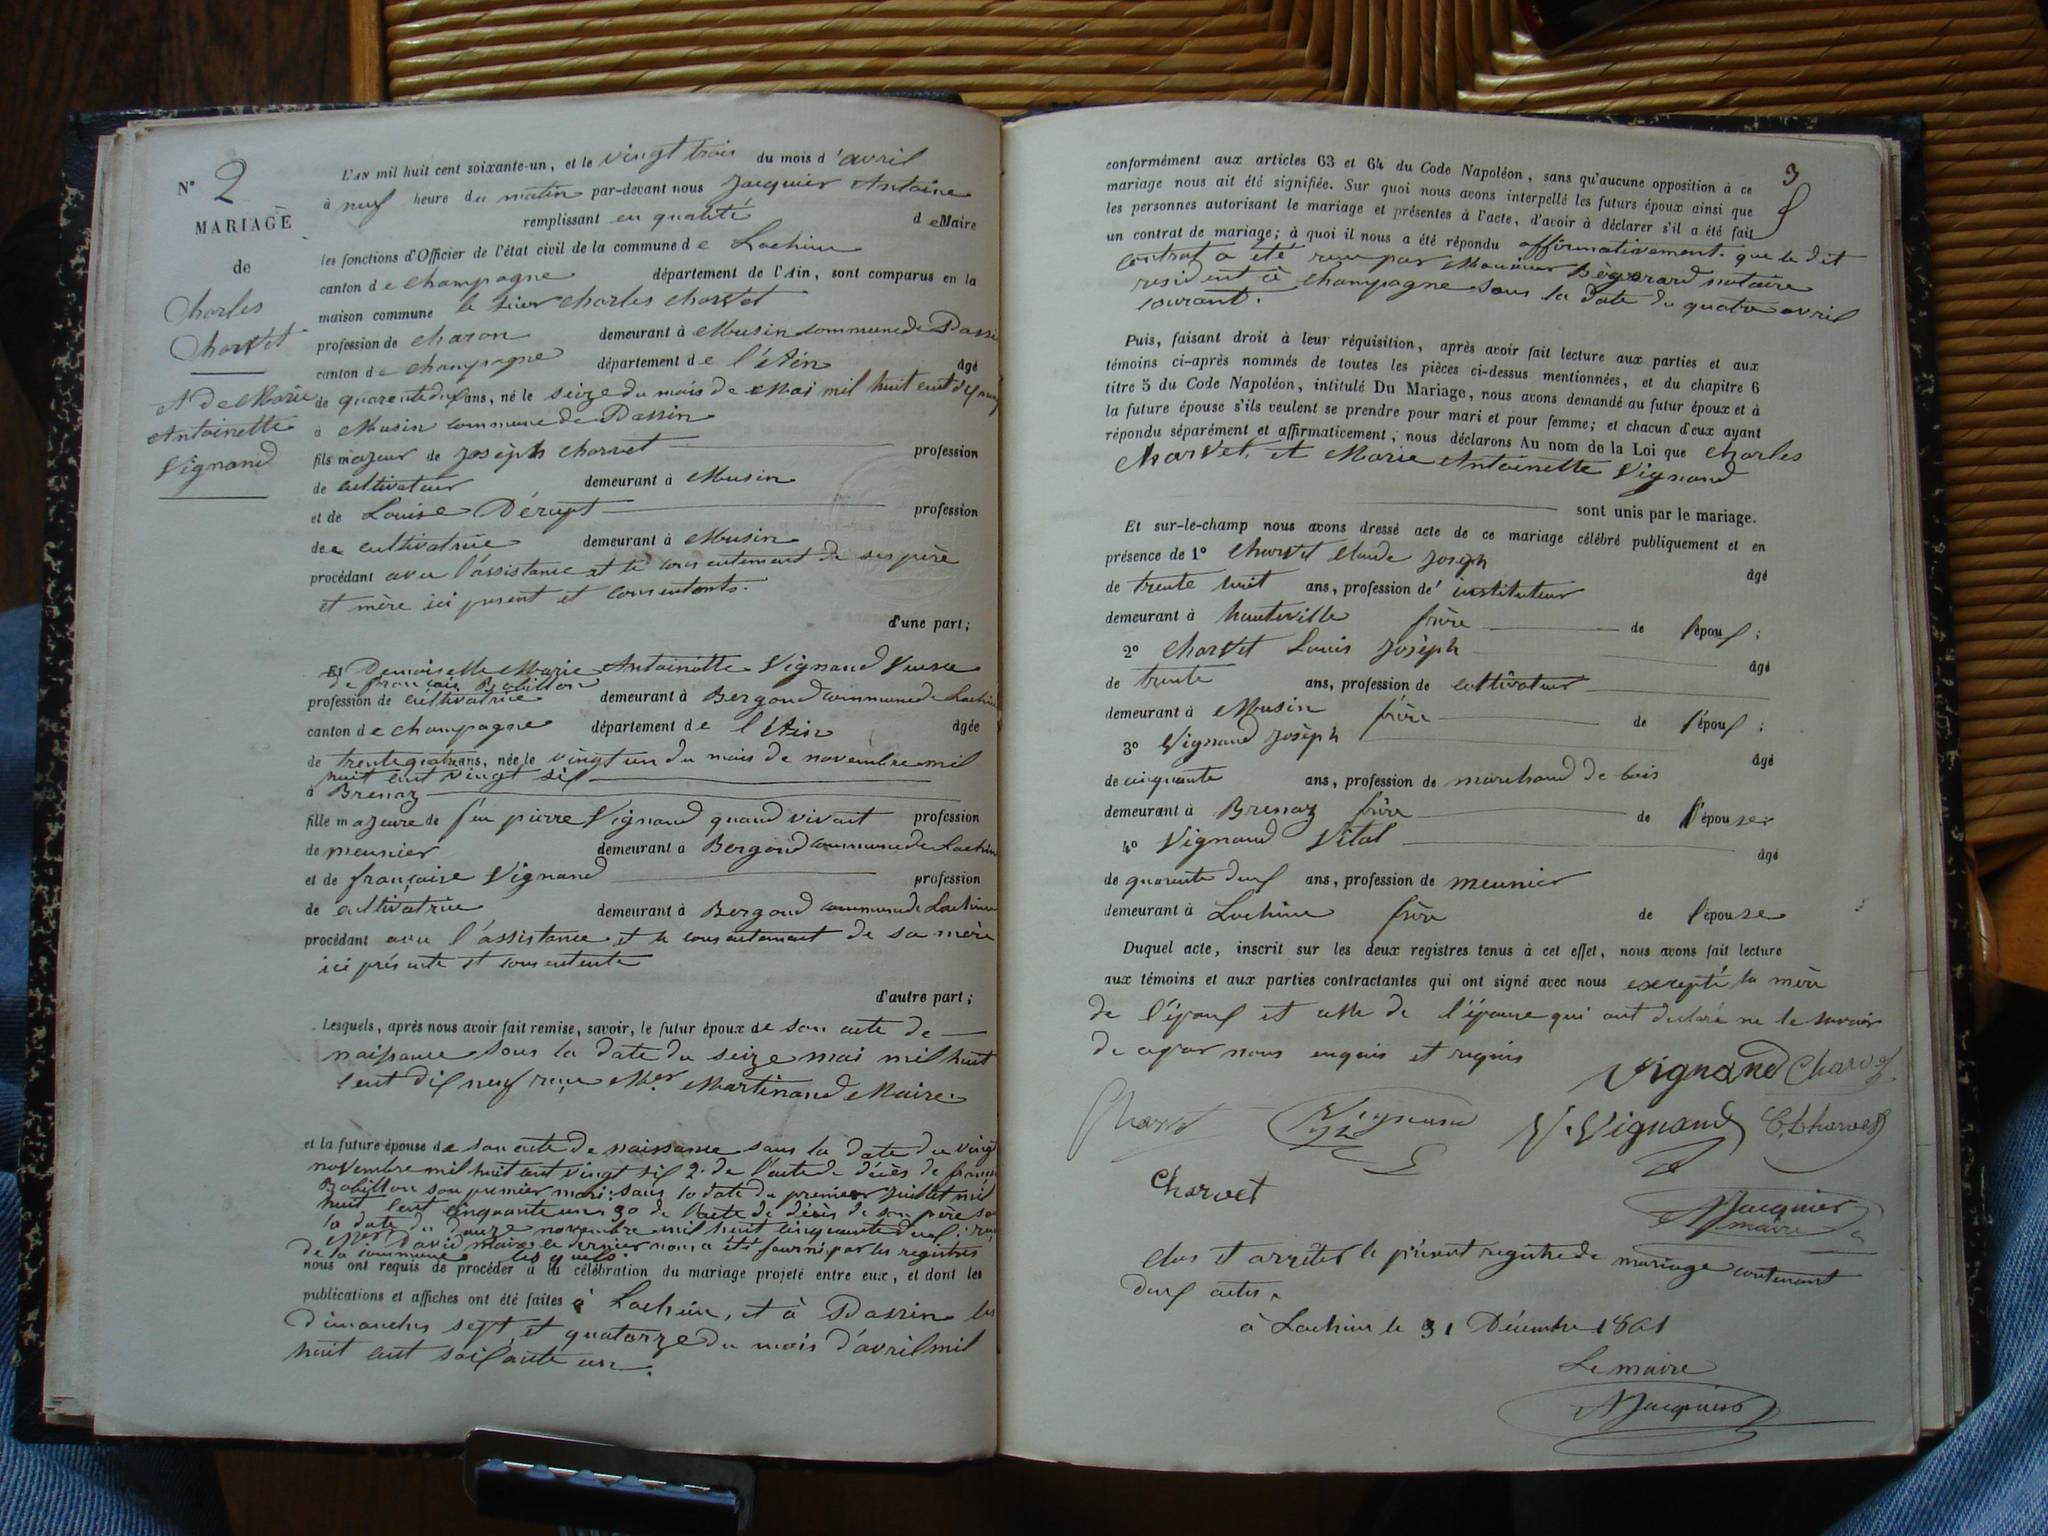 N° 2
MARIAGE
de
Charles
Charvet
et de Marie
Antoinette
Vignand
L'AN mil huit cent soixante-un, et le vingt trois du mois d'avril
à neuf heure du matin par-devant nous Jacquier Antoine
remplissant en qualité de Maire
les fonctions d'Officier de l'état civil de la commune de Lochieu
canton de champagne département de l'Ain, sont comparus en la
maison commune le sieur Charles Charvet
profession de charon demeurant à Musin commune de Passin
canton de champagne département de l'Ain âgé
de quarente deux ans, né le seize du mois de Mai mil huit cent dix neuf
à Musin commune de Passin
fils majeur de Joseph Charvet profession
de cultivateur demeurant à Musin
et de Louise Dérupt profession
de cultivatrice demeurant à Musin
procédant avec l'assistance et le consentement de ses père
et mère ici présent et consentants.
d'une part;
Et Demoiselle Marie Antoinette Vignand Veuve
de françois Robillon
profession de cultivatrice demeurant à Bergond commune de Lochieu
canton de champagne département de l'Ain âgée
de trente quatre ans, née le vingt un du mois de novembre mil
huit cent vingt six
à Brenaz
fille majeure de feu pierre Vignand quand vivait profession
de meunier demeurant à Bergond commune de Lochieu
et de françoise Vignand profession
de cultivatrice demeurant à Bergond commune de Lochieu
procédant avec l'assistance et le consentement de sa mère
ici présente et consentente
d'autre part;
Lesquels, après nous avoir fait remise, savoir, le futur époux de son acte de
naissance sous la date du seize mai mil huit
cent dix neuf reçu Mer Martinand Maire.
et la future épouse de son acte de naissance sous la date du vingt
novembre mil huit cent vingt six 2° de l'acte de décès de françois
Robillon son premier mari: sous la date du premier juillet mil
huit cent cinquante un 3° de l'acte de décès de son père sous
la date du douze novembre mil huit cinquante deux
David maire le dernier nous a été fourni par les registres
de la commune les quels.
nous ont requis de procéder à la célébration du mariage projeté entre eux, et dont les
publications et affiches ont été faites à Lochieu, et à Passin les
dimanches sept et quatorze du mois d'avril mil
huit cent soixante un.
3
conformément aux articles 63 et 64 du Code Napoléon, sans qu'aucune opposition à ce
mariage nous ait été signifiée. Sur quoi nous avons interpellé les futurs époux ainsi que
les personnes autorisant le mariage et présentes à l'acte, d'avoir à déclarer s'il a été fait
un contrat de mariage; à quoi il nous a été répondu affirmativement. que le dit
contrat a été reçu par Monsieur Béguerard notaire
résident à Champagne sous la date du quatre avril
courant.
Puis, faisant droit à leur réquisition, après avoir fait lecture aux parties et aux
témoins ci-après nommés de toutes les pièces ci-dessus mentionnées, et du chapitre 6
titre 5 du Code Napoléon, intitulé Du Mariage, nous avons demandé au futur époux et à
la future épouse s'ils veulent se prendre pour mari et pour femme; et chacun d'eux ayant
répondu séparément et affirmaticement, nous déclarons Au nom de la Loi que Charles
Charvet, et Marie Antoinette Vignand
sont unis par le mariage.
Et sur-le-champ nous avons dressé acte de ce mariage célébré publiquement et en
présence de 1° Charvet Claude Joseph âgé
de trente huit ans, profession d'instituteur
demeurant à hauteville frère de l'époux;
2° Charvet Louis Joseph âgé
de trente ans, profession de cultivateur
demeurant à Musin frère de l'époux;
3° Vignand Joseph âgé
de cinquante ans, profession de marchand de bois
demeurant à Brenaz frère de l'épouse;
4° Vignand Vital âgé
de quarente deux ans, profession de meunier
demeurant à Lochieu frère de l'épouse
Duquel acte, inscrit sur les deux registres tenus à cet effet, nous avons fait lecture
aux témoins et aux parties contractantes qui ont signé avec nous excepté la mère
de l'époux et celle de l'épouse qui ont declaré ne le savoir
de ce par nous enquis et requis
Vignand Charvet
Charvet Vignand V. Vignand C. Charvet
Charvet
A Jacquier
maire
Clos et arrêter le présent registre de mariage contenant
deux actes.
à Lochieu le 31 Décembre 1861
Le maire
A Jacquier